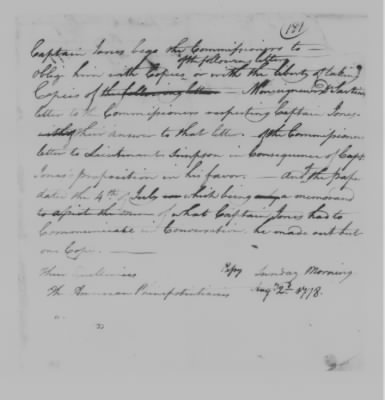 181
Captain Jones begs the Commissioners to
of the following letters
oblige him with Copies or with the liberty of taking
Copies of the following letters — Monseigneur De Sartine
letter to the Commissioners respecting Captain Jones
their answer to that letter. of the Commissioners
letter to Lieutenant Simpson in Consequence of Capt
Jones' proposition in his favor. — And the Paper
dated the 4th of July which being a memorand
to assist the mem of what Captain Jones had to
Communicate in Conversation he made out but
one Copy. —
Their Excellencies
Copy Sunday Morning
The American Plenipotentiaries
Augt 2d 1778.